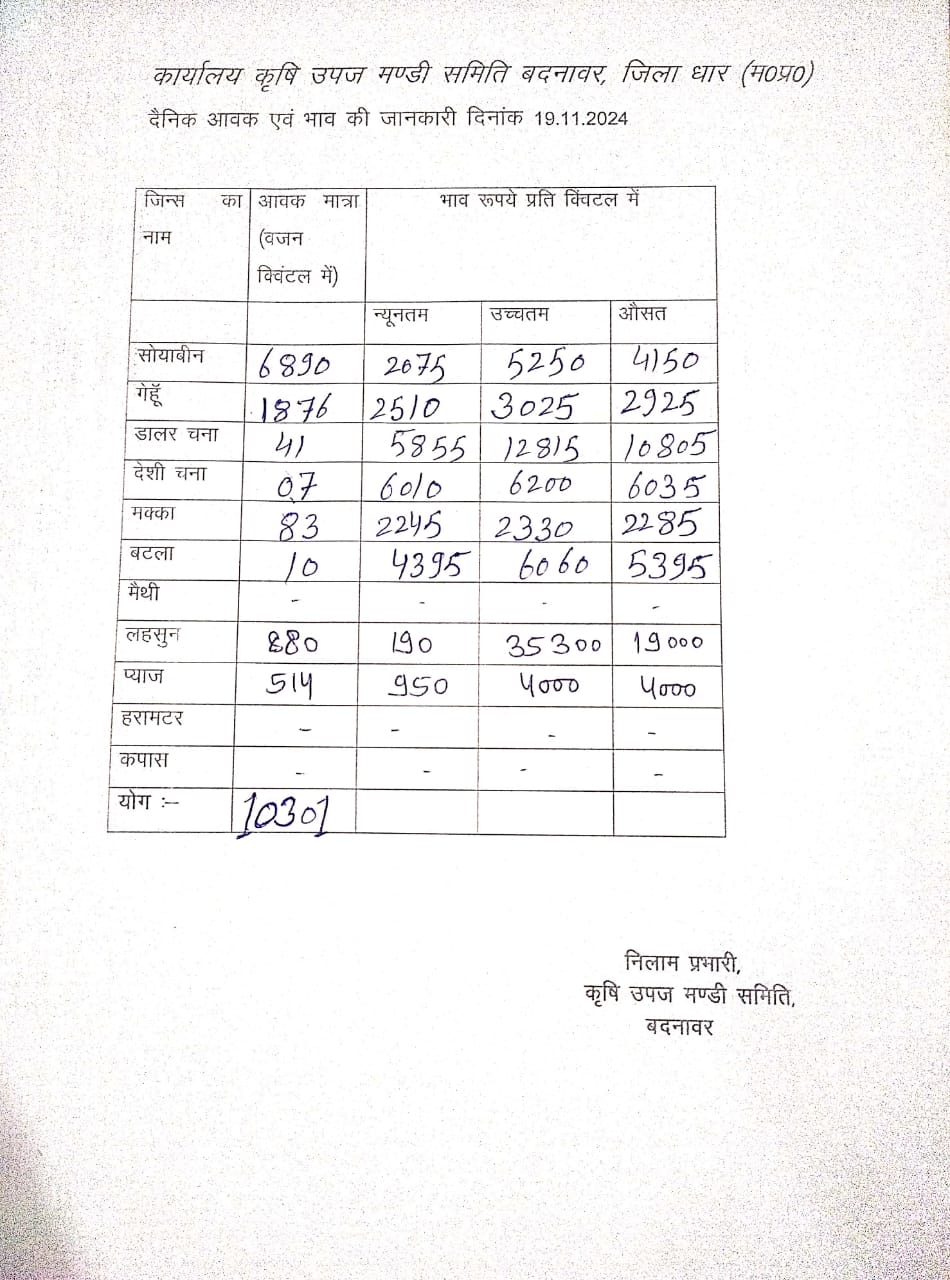 कार्यालय कृषि उपज मण्डी समिति बदनावर, जिला धार (म0प्र0)
दैनिक आवक एवं भाव की जानकारी दिनांक 19.11.2024
जिन्स का नाम आवक मात्रा (वजन क्विंटल में) भाव रूपये प्रति क्विंटल में
न्यूनतम उच्चतम औसत
सोयाबीन 6890 2075 5250 4150
गेहूॅ 1876 2510 3025 2925
डालर चना 41 5855 12815 10805
देशी चना 07 6010 6200 6035
मक्का 83 2245 2330 2285
बटला 10 4395 6060 5395
मैथी - - - -
लहसुन 880 190 35300 19000
प्याज 514 950 4000 4000
हरामटर - - - -
कपास - - - -
योग :– 10301
निलाम प्रभारी,
कृषि उपज मण्डी समिति,
बदनावर